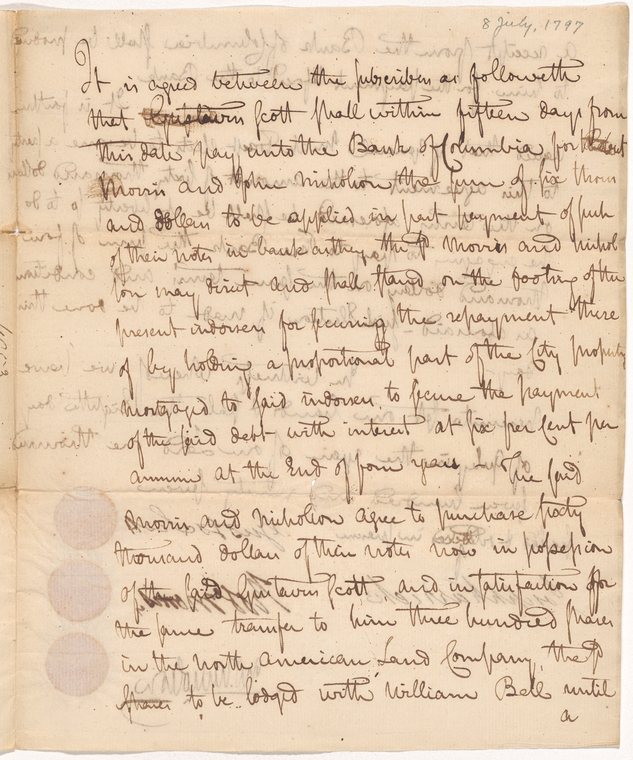 8 July, 1797
It is agreed between the subscribers as followeth
that Gustavus Scott shall within fifteen days from
this date pay unto the Bank of Columbia for Robert
Morris and John Nicholson the sum of six thous
and dollars to be applied in part payment of such
of their notes in bank as they the sd Morris and Nichol
son may direct and shall stand on the footing of the
present indorsers for securing the repayment there
of by holding a proportional part of the City property
mortgaged to said indorsers to secure the payment
of the said debt with interest at six per Cent per
annum at the End of four years The said
Morris and Nicholson agree to purchase sixty
thousand dollars of their notes now in possession
of the said Gustavus Scott, and in satisfaction for
the same transfer to him three hundred shares
in the North American Land Company, the sd
shares to be lodged with William Bell until
a